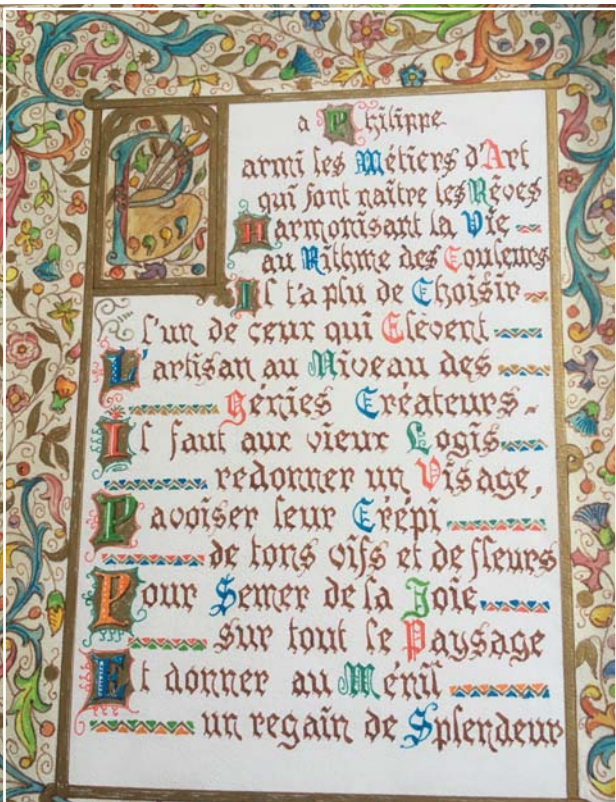 a Philippe
Parmi les Métiers d'Art
qui font naître les Rêves
Harmonisant la Vie
au Rithme des Couleurs
Il t'a plu de Choisir
l'un de ceux qui Elèvent
L'artisan au Niveau des
Génies Créateurs.
Il faut aux vieux Logis
redonner un Visage,
Pavoiser leur Crépi
de tons vifs et de fleurs
Pour Semer de la Joie
sur tout le Paysage
Et donner au Ménil
un regain de Splendeur